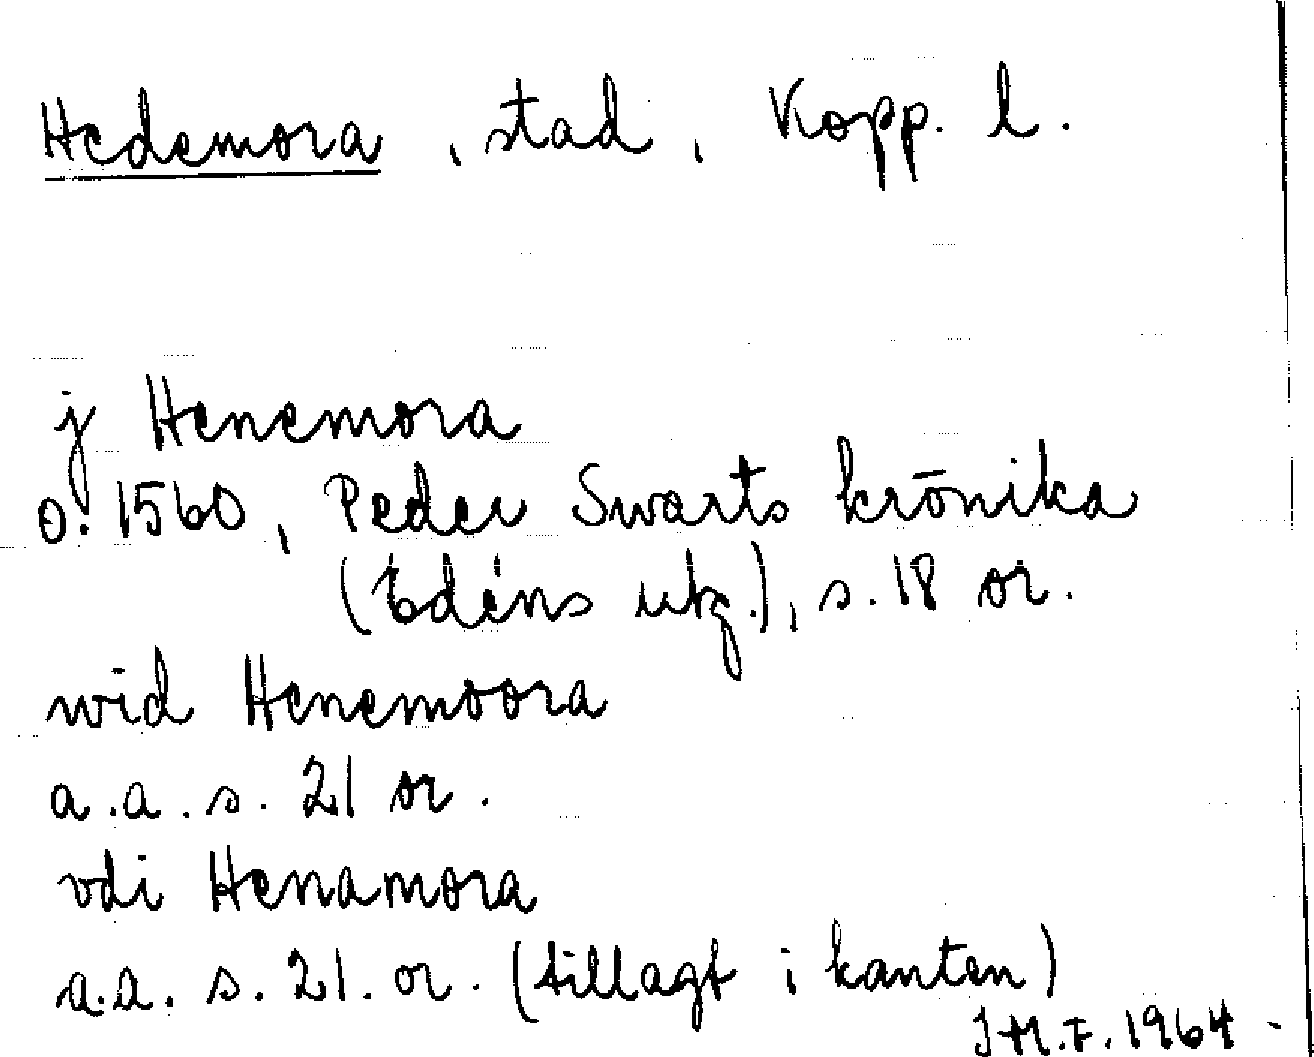 Hedemora, stad, Kopp. l.
j Henemora
o. 1560, Peder Swarts krönika
(Edéns utg.), s. 18 or.
wid Henemoora
a.a. s. 21 or.
vdi Henamora
a.a. s. 21. or. (tillagt i kanten)
J.M.F. 1964